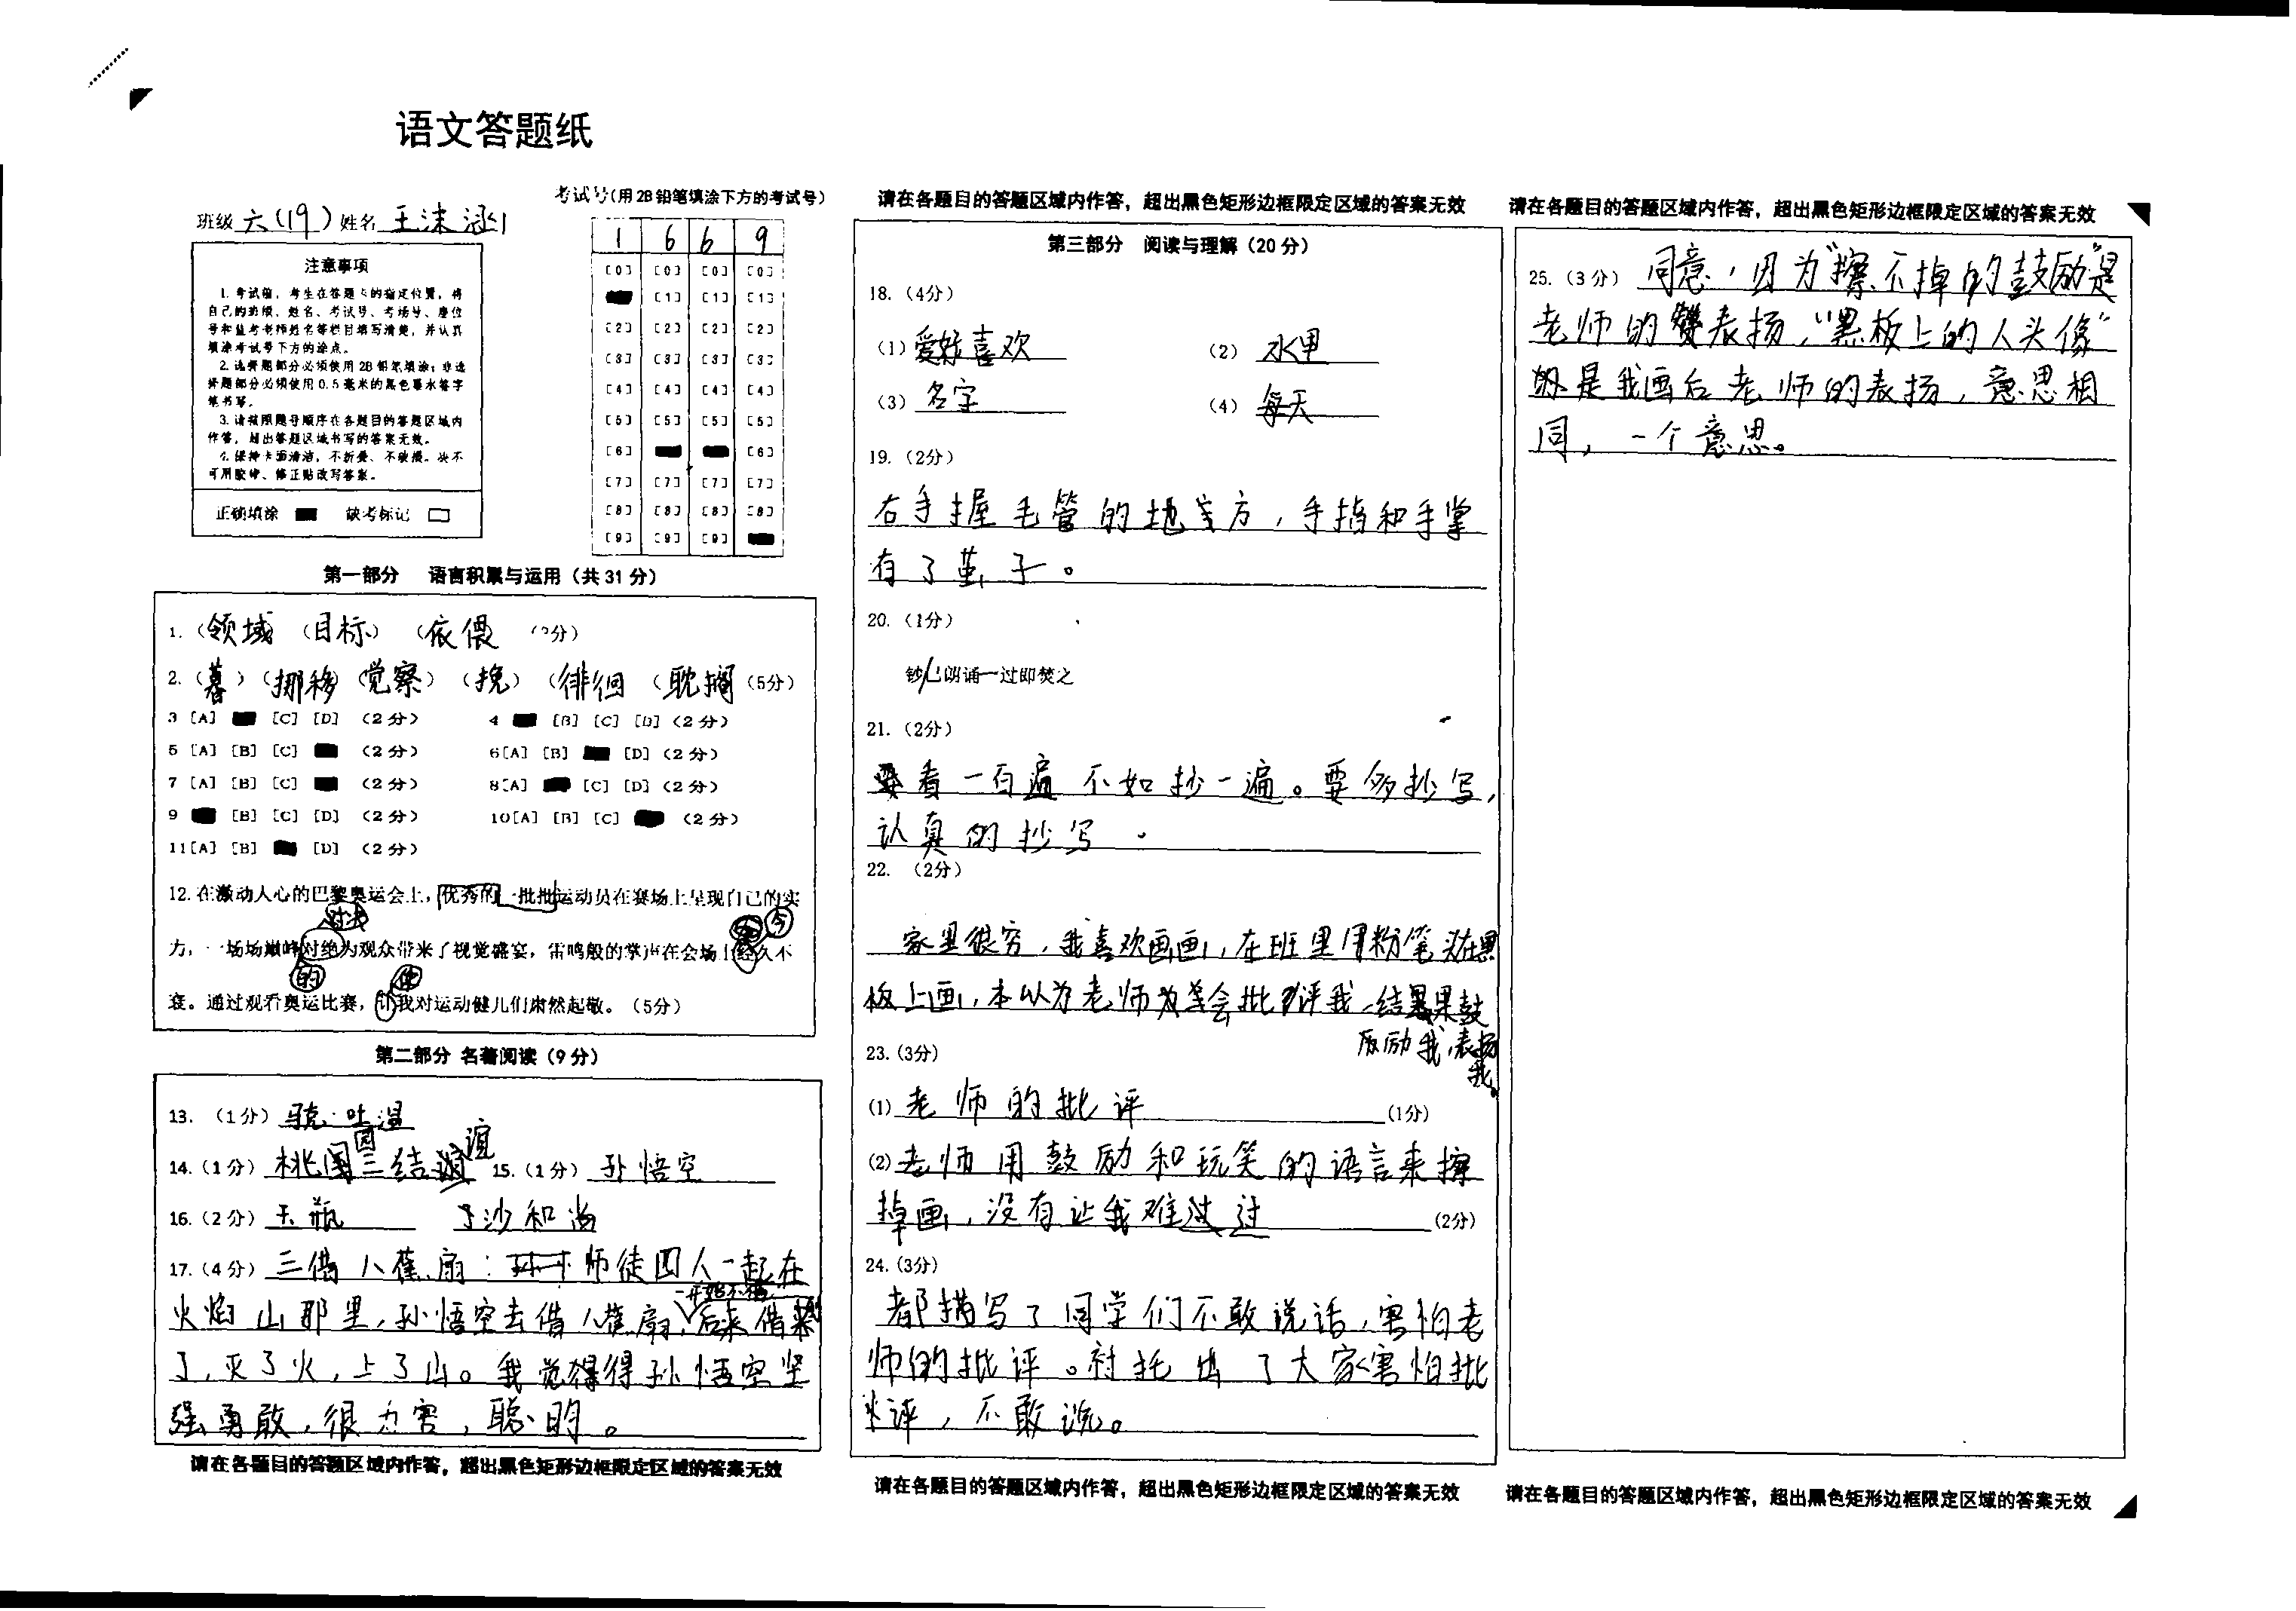 语文答题纸
班级 六(19) 姓名 王沫涵
考试号(用2B铅笔填涂下方的考试号)
1 6 6 9
注意事项
1. 考试前，考生在答题卡的指定位置，将
自己的班级、姓名、考试号、考场号、座位
号和监考老师姓名等栏目填写清楚，并认真
填涂考试号下方的涂点。
2. 选择题部分必须使用2B铅笔填涂；非选
择题部分必须使用0.5毫米的黑色墨水签字
笔书写。
3. 请按照题号顺序在各题目的答题区域内
作答，超出答题区域书写的答案无效。
4. 保持卡面清洁，不折叠、不破损。决不
可用胶带、修正贴改写答案。
正确填涂 缺考标记
[0] [0] [0] [0]
[1] [1] [1]
[2] [2] [2] [2]
[3] [3] [3] [3]
[4] [4] [4] [4]
[5] [5] [5] [5]
[6] [6]
[7] [7] [7] [7]
[8] [8] [8] [8]
[9] [9] [9]
第一部分 语言积累与运用（共31分）
1.（领域 （目标）（依偎
2.（暮）（挪移（觉察）（挽）（徘徊（耽搁（5分）
3 [A] [C] [D]（2分） 4 [B] [C] [D]（2分）
5 [A] [B] [C]（2分） 6[A] [B] [D]（2分）
7 [A] [B] [C]（2分） 8[A] [C] [D]（2分）
9 [B] [C] [D]（2分） 10[A] [B] [C]（2分）
11[A] [B] [D]（2分）
12. 在激动人心的巴黎奥运会上，优秀的一批批运动员在赛场上呈现自己的实
方，一场场巅峰对绝为观众带来了视觉盛宴，雷鸣般的掌声在会场上经久不
对决
的 使
衰。通过观看奥运比赛，让我对运动健儿们肃然起敬。（5分）
第二部分 名著阅读（9分）
13.（1分）骆吐温
14.（1分）桃园三结谊 15.（1分）孙悟空
16.（2分）玉瓶 沙和尚
17.（4分）三借八蕉扇：师徒四人一起在
火焰山那里，孙悟空去借八蕉扇，后来借来
了，灭了火，上了山。我觉得孙悟空坚
强勇敢，很力害，聪明。
请在各题目的答题区域内作答，超出黑色矩形边框限定区域的答案无效
请在各题目的答题区域内作答，超出黑色矩形边框限定区域的答案无效
第三部分 阅读与理解（20分）
18.（4分）
（1）爱好喜欢 （2）水甲
（3）名字 （4）每天
19.（2分）
右手握毛管的地方，手指和手掌
有了茧子。
20.（1分）
钞/已朗诵一过即焚之
21.（2分）
看一百遍不如抄一遍。要多抄写，
认真的抄写．
22.（2分）
家里很穷，我喜欢画画，在班里用粉笔头在黑
板上画，本以为老师会批评我，结果鼓
励我，表扬
我。
23.（3分）
（1）老师的批评（1分）
（2）老师用鼓励和玩笑的语言来擦
掉画，没有让我难过（2分）
24.（3分）
都描写了同学们不敢说话，害怕老
师的批评。衬托出了大家害怕批
评，不敢说。
请在各题目的答题区域内作答，超出黑色矩形边框限定区域的答案无效
请在各题目的答题区域内作答，超出黑色矩形边框限定区域的答案无效
25.（3分）同意，因为“擦不掉的鼓励”是
老师的表扬，“黑板上的人头像”
是我画后老师的表扬，意思相
同，一个意思。
请在各题目的答题区域内作答，超出黑色矩形边框限定区域的答案无效